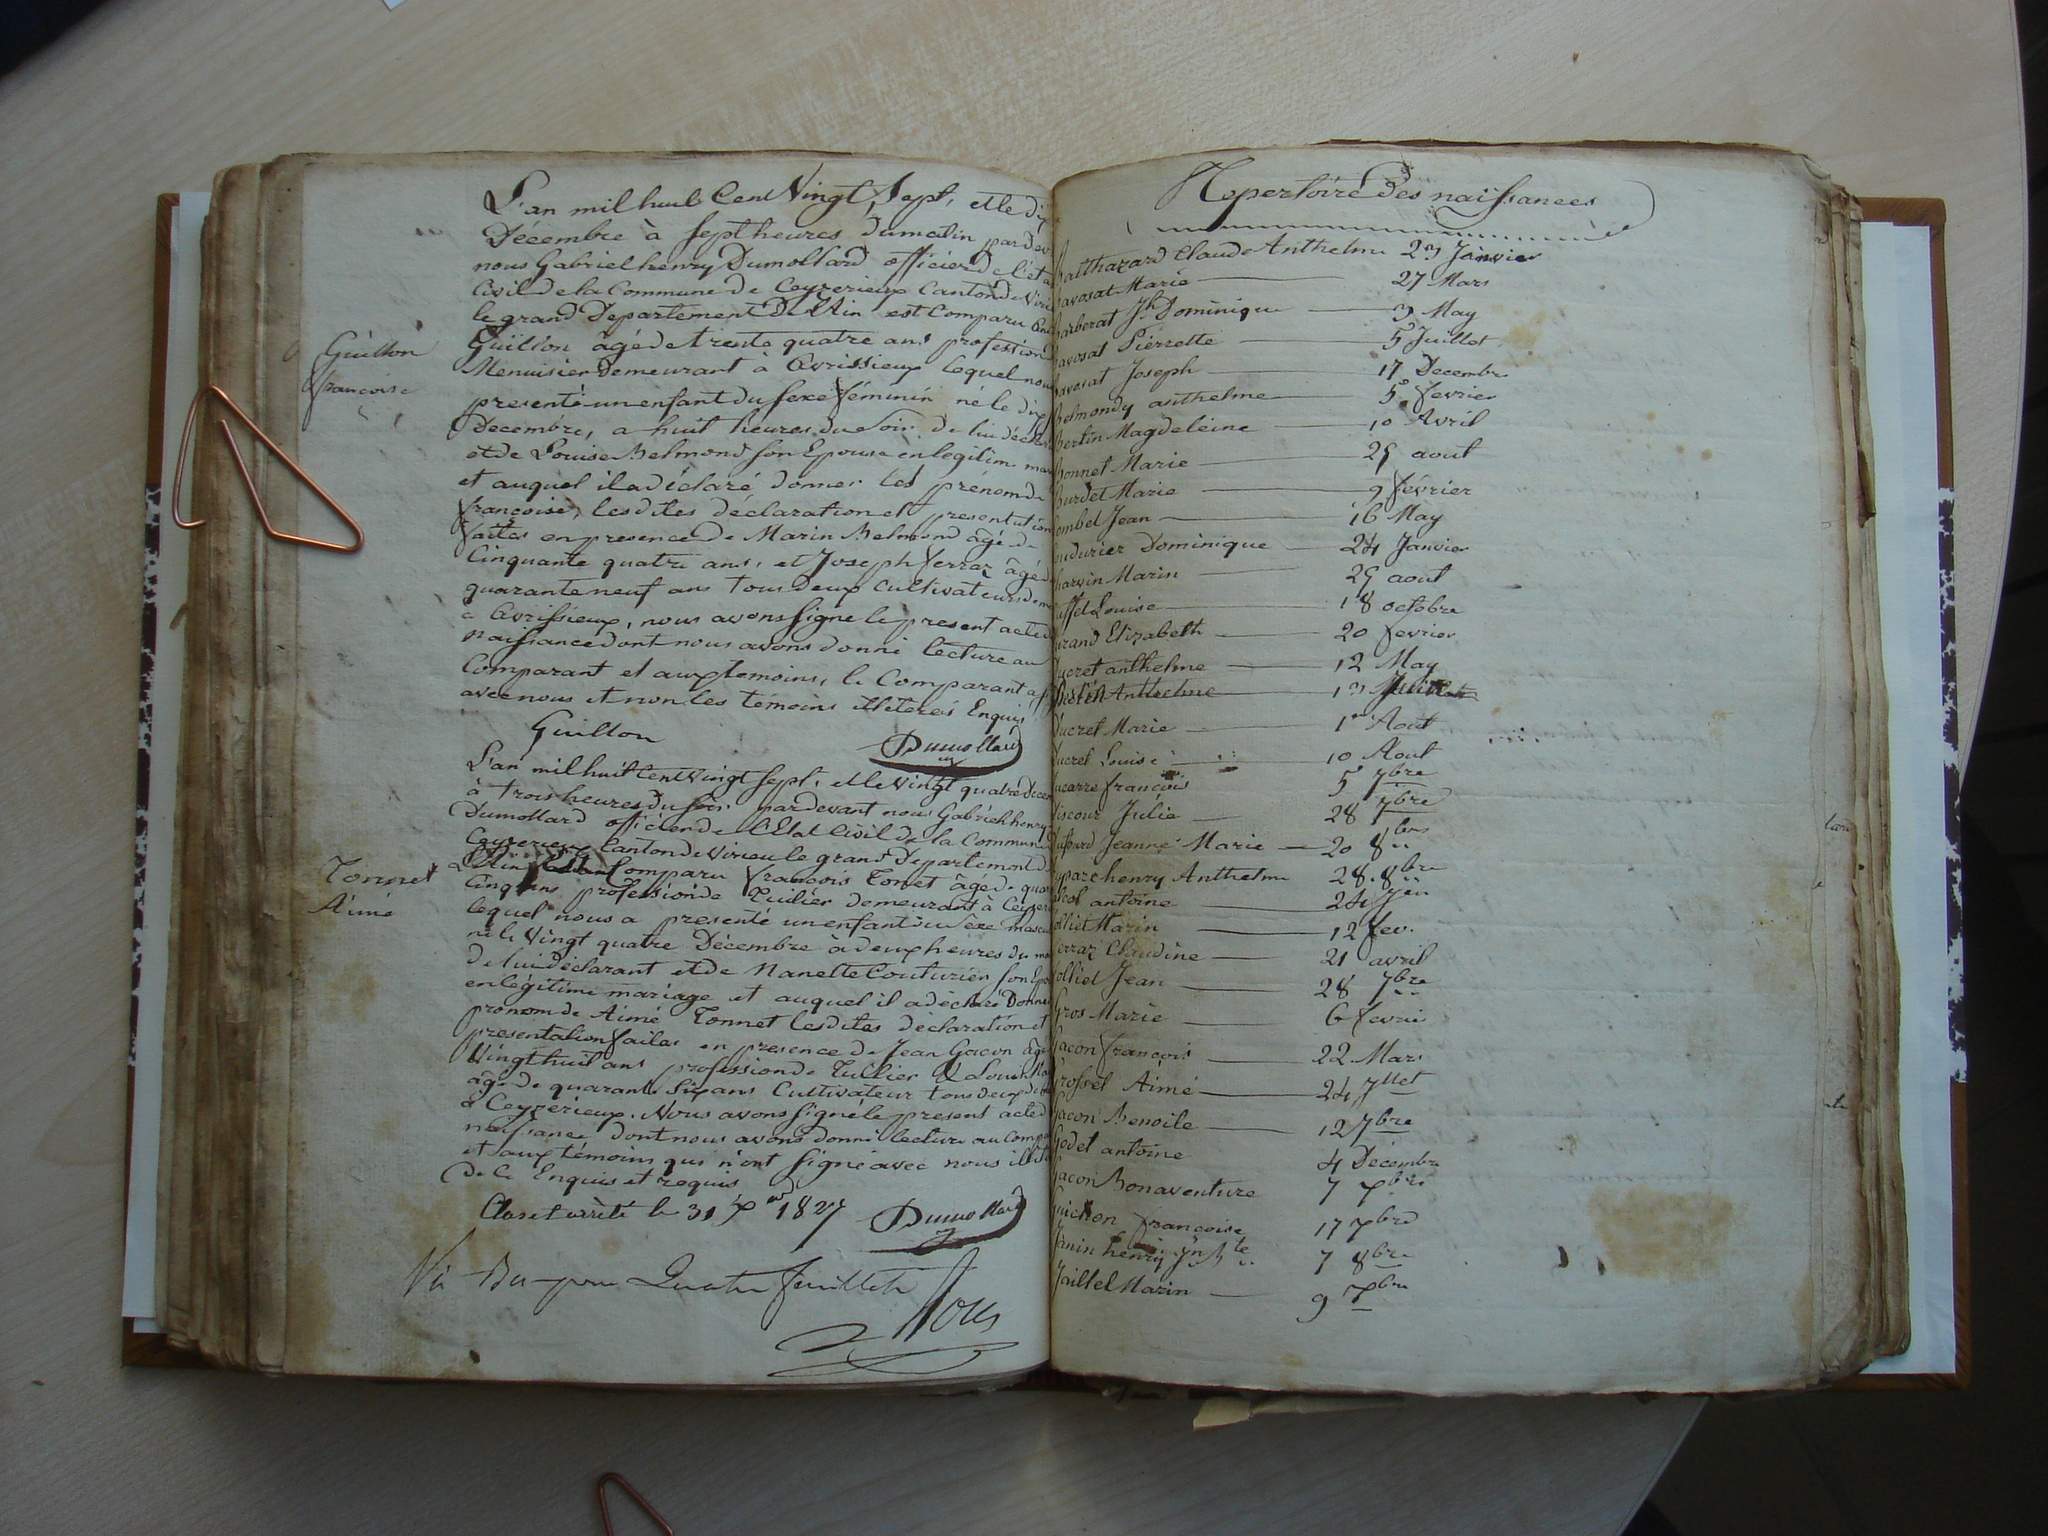 L'an mil huit Cent Vingt Sept, et le dix
Décembre à Sept heures du matin par dev
nous Gabriel henry Dumollard officier de l'éta
Civil de la Commune de Ceyzerieux Canton de Viri
le grand Departement De l'Ain est Comparu
Guillon âgé de trente quatre ans profession
Menuisier Demeurant à Avrissieux lequel nous
presenté un enfant du Sexe féminin né le dix
Decembre, a huit heures du Soir de lui déclar
et de Louise Belmond Son Epouse en legitime mar
et auquel il a déclaré donner les prénom de
françoise, lesdites déclaration et presentation
faites en presence de Marin Belmond âgé de
Cinquante quatre ans, et Joseph ferraz âgé de
quarante neuf ans tous deux Cultivateurs dem
à Avrissieux, nous avons Signé le present acte de
naissance dont nous avons donné lecture au
Comparant et aux témoins, le Comparant a
avec nous et non les témoins illeterés Enquis
Guillon
françoise
Guillon Dumollard
L'an mil huit Cent Vingt Sept, et le Vingt quatre Decem
à trois heures du Soir pardevant nous Gabriel henry
Dumollard officier de l'Etat Civil de la Commune
Ceyzerieux Canton de Virieu le grand Departement d
L'Ain Comparu françois Tonnet âgé de quar
Cinq ans profession de Tuilier demeurant à Ceyzer
lequel nous a presenté un enfant du Sexe mascu
né le Vingt quatre Décembre à deux heures du ma
de lui déclarant et de Nanette Couturier Son Epo
en légitime mariage et auquel il a déclaré Donner
prenom de Aimé Tonnet lesdites déclaration et
presentation faites en presence de Jean Gacon âgé
Vingt huit ans profession de Tuillier &
âgé de quarante Six ans Cultivateur tous deux de
à Ceyzerieux. Nous avons Signé le present acte d
naissance dont nous avons donné lecture au Compa
et aux témoins qui n'ont Signé avec nous
de ce Enquis et requis
Tonnet
Aimé
Clos et arrété le 31 Xbre 1827 Dumollard
Quatre feuillets
Repertoire des naissances
althazard Claude Anthelme 23 Janvier
avosat Marie 27 Mars
arberat Jh Dominique 3 May
avosat Pierrette 5 Juillet
avosat Joseph 17 Decembre
Belmondy anthelme 5 fevrier
Bertin Magdeleine 10 Avril
Bonnet Marie 29 aout
Burdet Marie 9 février
ombet Jean 16 May
udurier Dominique 24 Janvier
harvin Marin 29 aout
uffet Louise 18 octobre
urand Elizabeth 20 fevrier
ucret anthelme 12 May
Anthelme 13 Juillet
Ducret Marie 1er Aout
Ducret Louise 10 Aout
ucarre françois 5 7bre
iscour Julie 28 7bre
Jeanne Marie 20 8bre
uparc henry Anthelme 28 8bre
antoine 24 Jen
olliet Marin 12 fev.
ferraz Claudine 21 avril
olliet Jean 28 7bre
Gros Marie 6 fevrier
Gacon françois 22 Mars
rosset Aimé 24 7llet
Gacon Benoite 12 7bre
Godet antoine 4 Décembre
Gacon Bonaventure 7 Xbre
Guichon françoise 17 Xbre
Janin henry Jn Bte 7 8bre
Jaillet Marin 9 Xbre